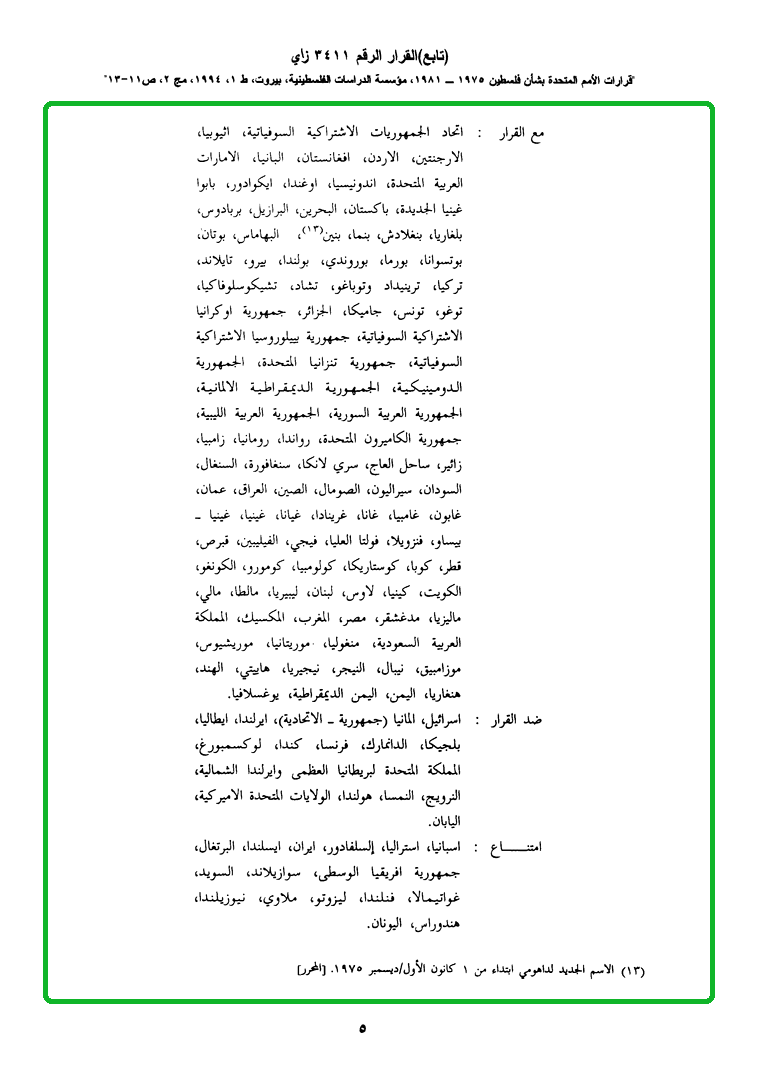 (تابع)القرار الرقم ٣٤١١ زاي
"قرارات الأمم المتحدة بشأن فلسطين ١٩٧٥ ــ ١٩٨١، مؤسسة الدراسات الفلسطينية، بيروت، ط ١، ١٩٩٤، مج ٢، ص١١-١٣"
مع القرار : اتحاد الجمهوريات الاشتراكية السوفياتية، اثيوبيا،
الارجنتين، الاردن، افغانستان، البانيا، الامارات
العربية المتحدة، اندونيسيا، اوغندا، ايكوادور، بابوا
غينيا الجديدة، باكستان، البحرين، البرازيل، بربادوس،
بلغاريا، بنغلادش، بنما، بنين(١٣)، البهاماس، بوتان،
بوتسوانا، بورما، بوروندي، بولندا، بيرو، تايلاند،
تركيا، ترينيداد وتوباغو، تشاد، تشيكوسلوفاكيا،
توغو، تونس، جاميكا، الجزائر، جمهورية اوكرانيا
الاشتراكية السوفياتية، جمهورية بييلوروسيا الاشتراكية
السوفياتية، جمهورية تنزانيا المتحدة، الجمهورية
الدومينيكية، الجمهورية الديمقراطية الالمانية،
الجمهورية العربية السورية، الجمهورية العربية الليبية،
جمهورية الكاميرون المتحدة، رواندا، رومانيا، زامبيا،
زائير، ساحل العاج، سري لانكا، سنغافورة، السنغال،
السودان، سيراليون، الصومال، الصين، العراق، عمان،
غابون، غامبيا، غانا، غرينادا، غيانا، غينيا، غينيا ــ
بيساو، فنزويلا، فولتا العليا، فيجي، الفيليبين، قبرص،
قطر، كوبا، كوستاريكا، كولومبيا، كومورو، الكونغو،
الكويت، كينيا، لاوس، لبنان، ليبيريا، مالطا، مالي،
ماليزيا، مدغشقر، مصر، المغرب، المكسيك، المملكة
العربية السعودية، منغوليا، موريتانيا، موريشيوس،
موزامبيق، نيبال، النيجر، نيجيريا، هاييتي، الهند،
هنغاريا، اليمن، اليمن الديمقراطية، يوغسلافيا.
ضد القرار : اسرائيل، المانيا (جمهورية ــ الاتحادية)، ايرلندا، ايطاليا،
بلجيكا، الدانمارك، فرنسا، كندا، لوكسمبورغ،
المملكة المتحدة لبريطانيا العظمى وايرلندا الشمالية،
النرويج، النمسا، هولندا، الولايات المتحدة الاميركية،
اليابان.
امتنـــــاع : اسبانيا، استراليا، إلسلفادور، ايران، ايسلندا، البرتغال،
جمهورية افريقيا الوسطى، سوازيلاند، السويد،
غواتيمالا، فنلندا، ليزوتو، ملاوي، نيوزيلندا،
هندوراس، اليونان.
(١٣) الاسم الجديد لداهومي ابتداء من ١ كانون الأول/ديسمبر ١٩٧٥. [المحرر]
٥